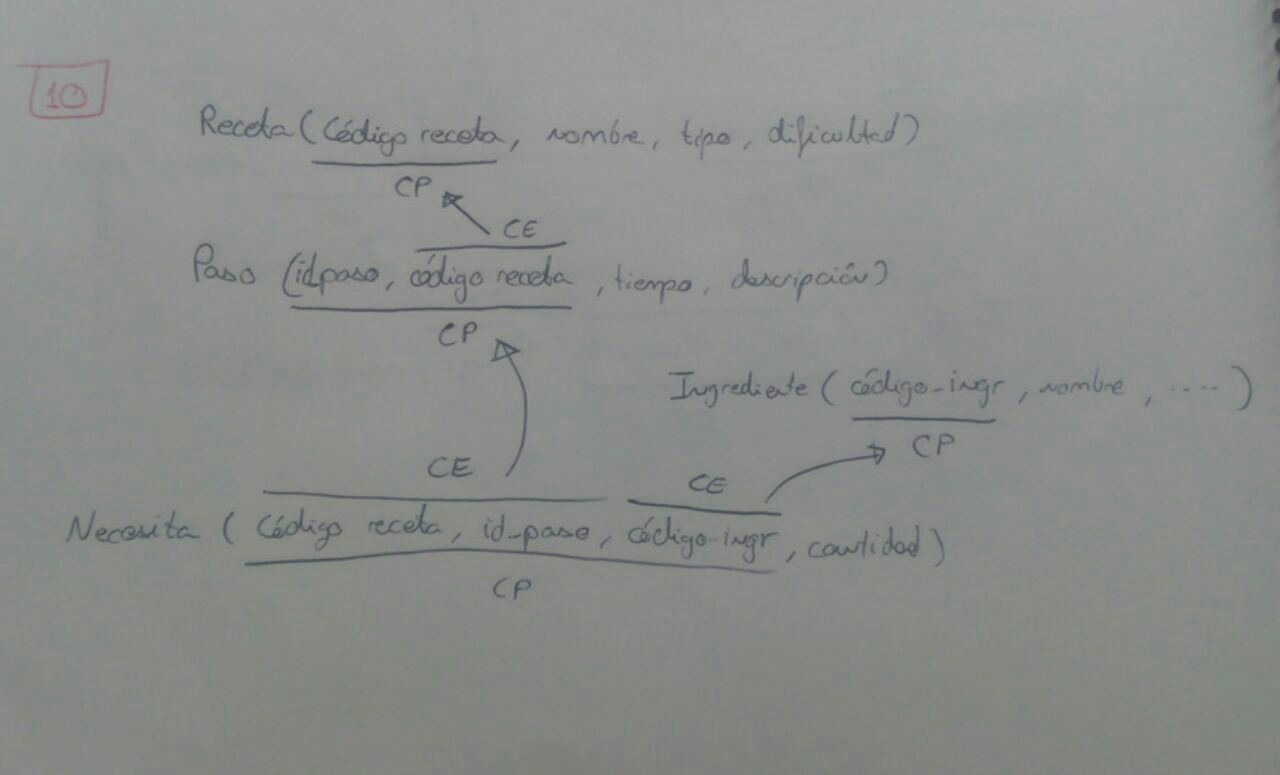 10
Receta (Código receta, nombre, tipo, dificultad)
CP
CE
Paso (id_paso, código receta, tiempo, descripción)
CP
Ingrediente (código-ingr, nombre, ....)
CP
CE
CE
Necesita (Código receta, id_paso, código-ingr, cantidad)
CP